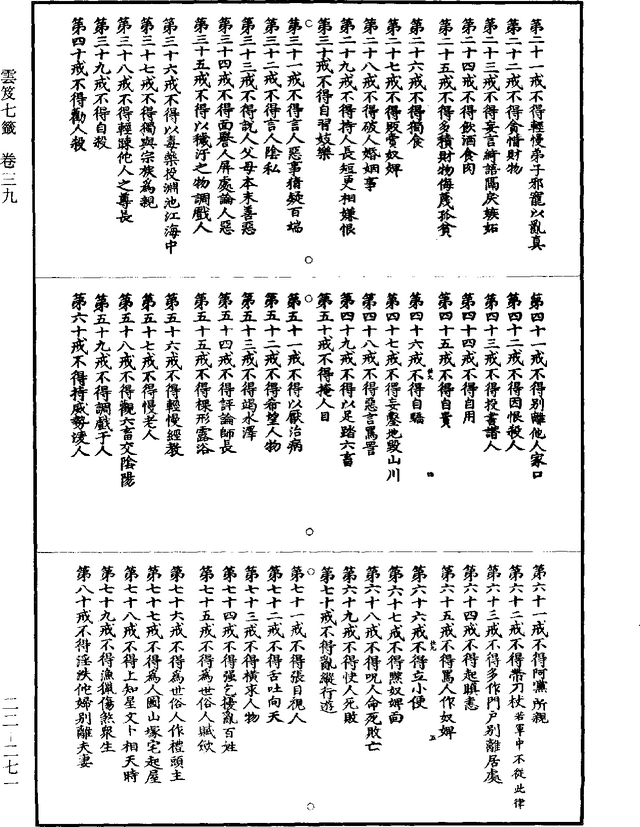 雲笈七籤 卷三九
第二十一戒不得輕慢弟子邪寵以亂真
第二十二戒不得貪惜財物
第二十三戒不得妄言綺語隔戾嫉妬
第二十四戒不得飲酒食肉
第二十五戒不得多積財物侮蔑孤貧
第二十六戒不得獨食
第二十七戒不得販賣奴婢
第二十八戒不得破人婚姻事
第二十九戒不得持人長短更相嫌恨
第三十戒不得自習妓樂
第三十一戒不得言人惡事猜疑百端
第三十二戒不得言人陰私
第三十三戒不得說人父母本末善惡
第三十四戒不得面譽人屏處論人惡
第三十五戒不得以穢汙之物調戲人
第三十六戒不得以毒藥投淵池江海中
第三十七戒不得獨與宗族為親
第三十八戒不得輕踈他人之尊長
第三十九戒不得自殺
第四十戒不得勸人殺
第四十一戒不得別離他人家口
第四十二戒不得因恨殺人
第四十三戒不得投書譖人
第四十四戒不得自用
第四十五戒不得自貴
第四十六戒不得自驕
第四十七戒不得妄鑿地毀山川
第四十八戒不得惡言罵詈
第四十九戒不得以足踏六畜
第五十戒不得掩人目
第五十一戒不得以厭治病
第五十二戒不得希望人物
第五十三戒不得竭水澤
第五十四戒不得評論師長
第五十五戒不得裸形露浴
第五十六戒不得輕慢經教
第五十七戒不得慢老人
第五十八戒不得觀六畜交陰陽
第五十九戒不得調戲于人
第六十戒不得持威勢淩人
第六十一戒不得阿黨所親
第六十二戒不得帶刀杖若軍中不從此律
第六十三戒不得多作門戶別離居處
第六十四戒不得起瞋恚
第六十五戒不得罵人作奴婢
第六十六戒不得立小便
第六十七戒不得黥奴婢面
第六十八戒不得呪人命死敗亡
第六十九戒不得使人死敗
第七十戒不得亂縱行遊
第七十一戒不得張目視人
第七十二戒不得舌吐向天
第七十三戒不得橫求人物
第七十四戒不得强乞擾亂百姓
第七十五戒不得為世俗人賦歛
第七十六戒不得為世俗人作禮頭主
第七十七戒不得為人圖山塚宅起屋
第七十八戒不得上知星文卜相天時
第七十九戒不得漁獵傷煞衆生
第八十戒不得淫泆他婦別離夫妻
二二-二七一